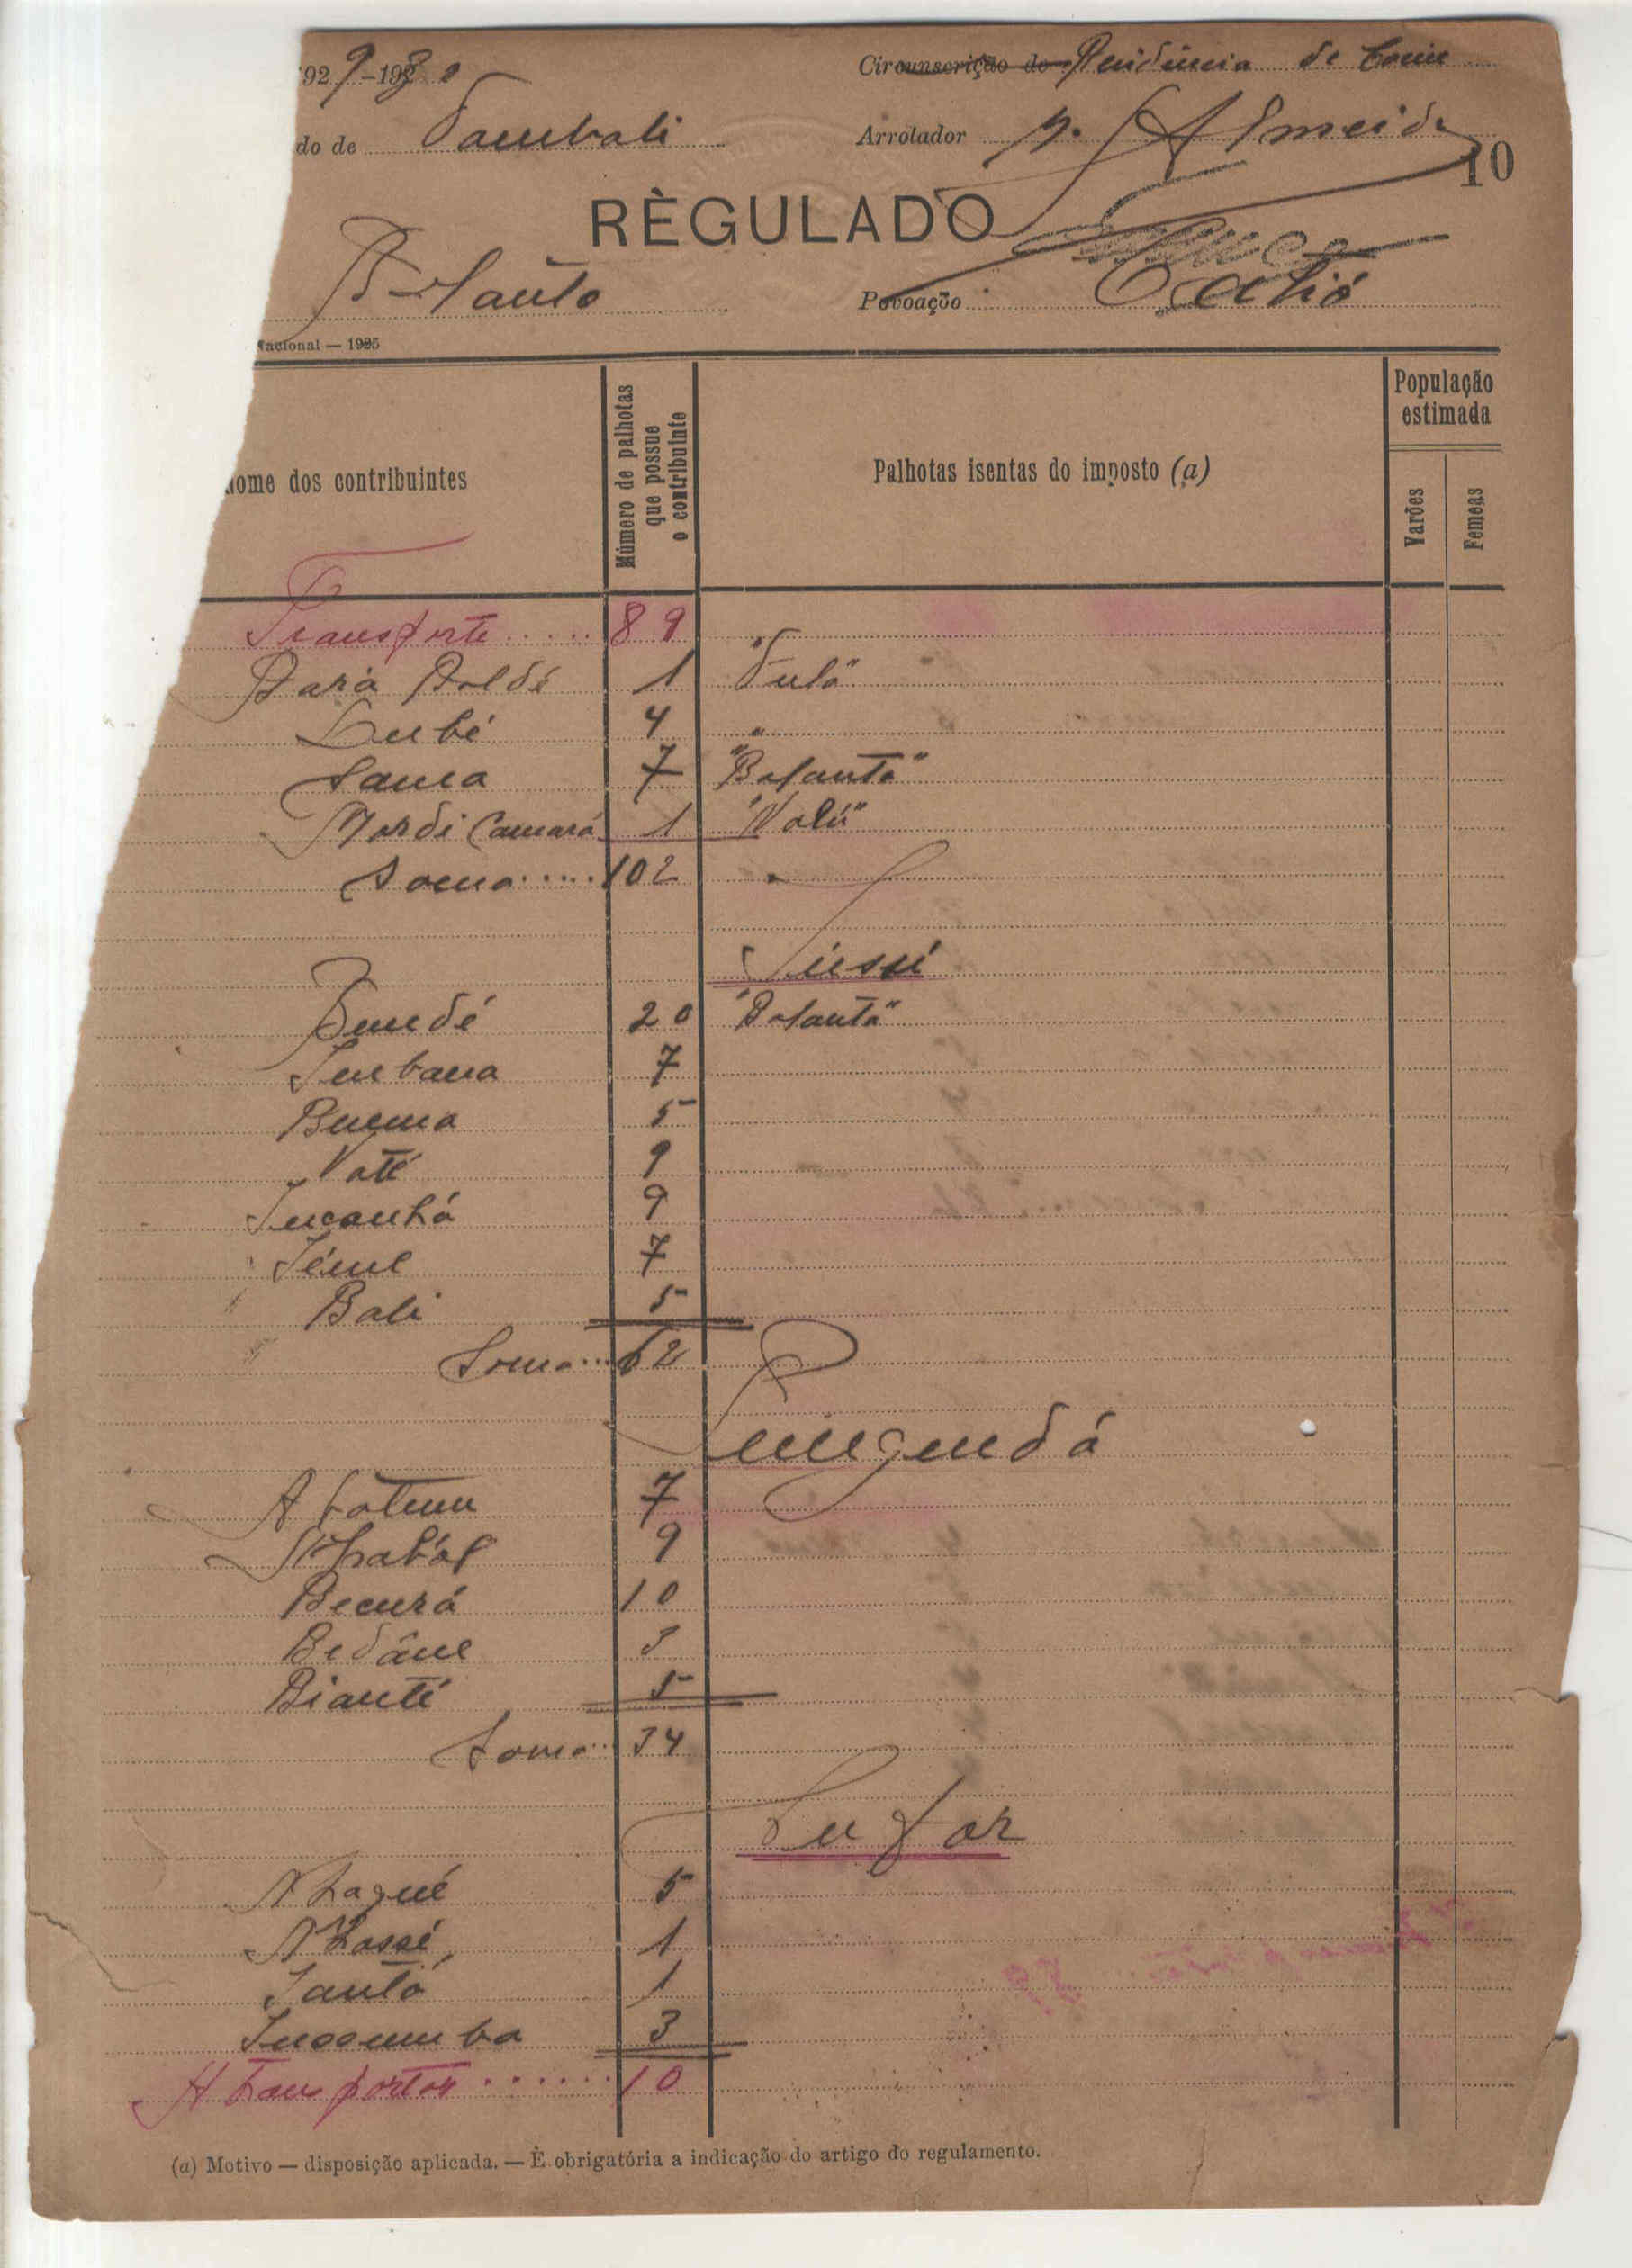 1929-1930 Circunscrição de Residência de Cacine
do de Tombali Arrolador Almeida
10
RÈGULADO
Balanto Povoação Catió
Nacional — 1925
Nome dos contribuintes Número de palhotas que possue o contribuinte Palhotas isentas do imposto (a) População estimada
Varões Femeas
Transporte ..... 89
Bará Baldé 1 "Fula"
4 "
Sama 7 "Balanta"
Mordi Camará 1 "Nalú"
Soma ..... 102
20 "Balanta"
Imbana 7
Buema 5
Naté 9
Incanhá 9
7
Bali 5
Soma ... 62
7
9
Becurá 10
Bedâne 3
Bianté 5
Soma .. 34
Cufar
N'hagué 5
N'hassé 1
Santá 1
Incoumba 3
A transportar ...... 10
(a) Motivo — disposição aplicada. — È obrigatória a indicação do artigo do regulamento.